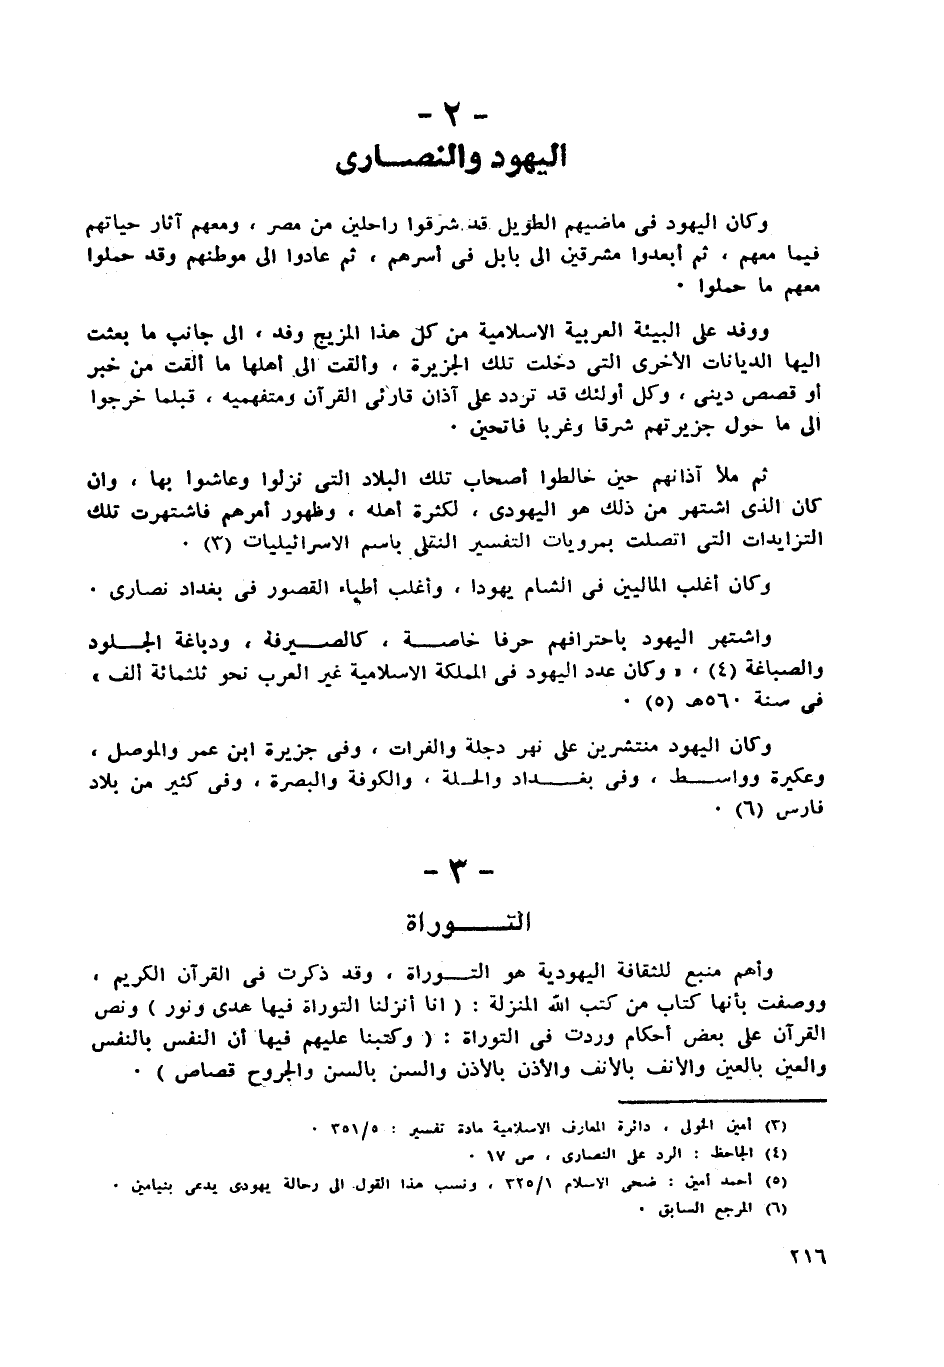 - ٢ -
اليهود والنصـــارى
وكان اليهود فى ماضيهم الطويل قد شرقوا راحلين من مصر ، ومعهم آثار حياتهم
فيما معهم ، ثم أبعدوا مشرقين الى بابل فى أسرهم ، ثم عادوا الى موطنهم وقد حملوا
معهم ما حملوا ٠
ووفد على البيئة العربية الاسلامية من كل هذا المزيج وفد ، الى جانب ما بعثت
اليها الديانات الأخرى التى دخلت تلك الجزيرة ، وألقت الى أهلها ما ألقت من خبر
أو قصص دينى ، وكل أولئك قد تردد على آذان قارئى القرآن ومتفهميه ، قبلما خرجوا
الى ما حول جزيرتهم شرقا وغربا فاتحين ٠
ثم ملأ آذانهم حين خالطوا أصحاب تلك البلاد التى نزلوا وعاشوا بها ، وان
كان الذى اشتهر من ذلك هو اليهودى ، لكثرة أهله ، وظهور أمرهم فاشتهرت تلك
التزايدات التى اتصلت بمرويات التفسير النقلى باسم الاسرائيليات (٣) ٠
وكان أغلب الماليين فى الشام يهودا ، وأغلب أطباء القصور فى بغداد نصارى ٠
واشتهر اليهود باحترافهم حرفا خاصـــة ، كالصـــيرفة ، ودباغة الجـــلود
والصباغة (٤) ، « وكان عدد اليهود فى المملكة الاسلامية غير العرب نحو ثلثمائة ألف »
فى سنة ٥٦٠هـ (٥) ٠
وكان اليهود منتشرين على نهر دجلة والفرات ، وفى جزيرة ابن عمر والموصل ،
وعكبرة وواســـط ، وفى بغـــداد والحـلة ، والكوفة والبصرة ، وفى كثير من بلاد
فارس (٦) ٠
- ٣ -
التـــــوراة
وأهم منبع للثقافة اليهودية هو التـــوراة ، وقد ذكرت فى القرآن الكريم ،
ووصفت بأنها كتاب من كتب الله المنزلة : ( انا أنزلنا التوراة فيها هدى ونور ) ونص
القرآن على بعض أحكام وردت فى التوراة : ( وكتبنا عليهم فيها أن النفس بالنفس
والعين بالعين والأنف بالأنف والأذن بالأذن والسن بالسن والجروح قصاص ) ٠
(٣) أمين الخولى ، دائرة المعارف الاسلامية مادة تفسير : ٣٥١/٥ ٠
(٤) الجاحظ : الرد على النصارى ، ص ١٧ ٠
(٥) أحمد أمين : ضحى الاسلام ٣٢٥/١ ، ونسب هذا القول الى رحالة يهودى يدعى بنيامين ٠
(٦) المرجع السابق ٠
٢١٦